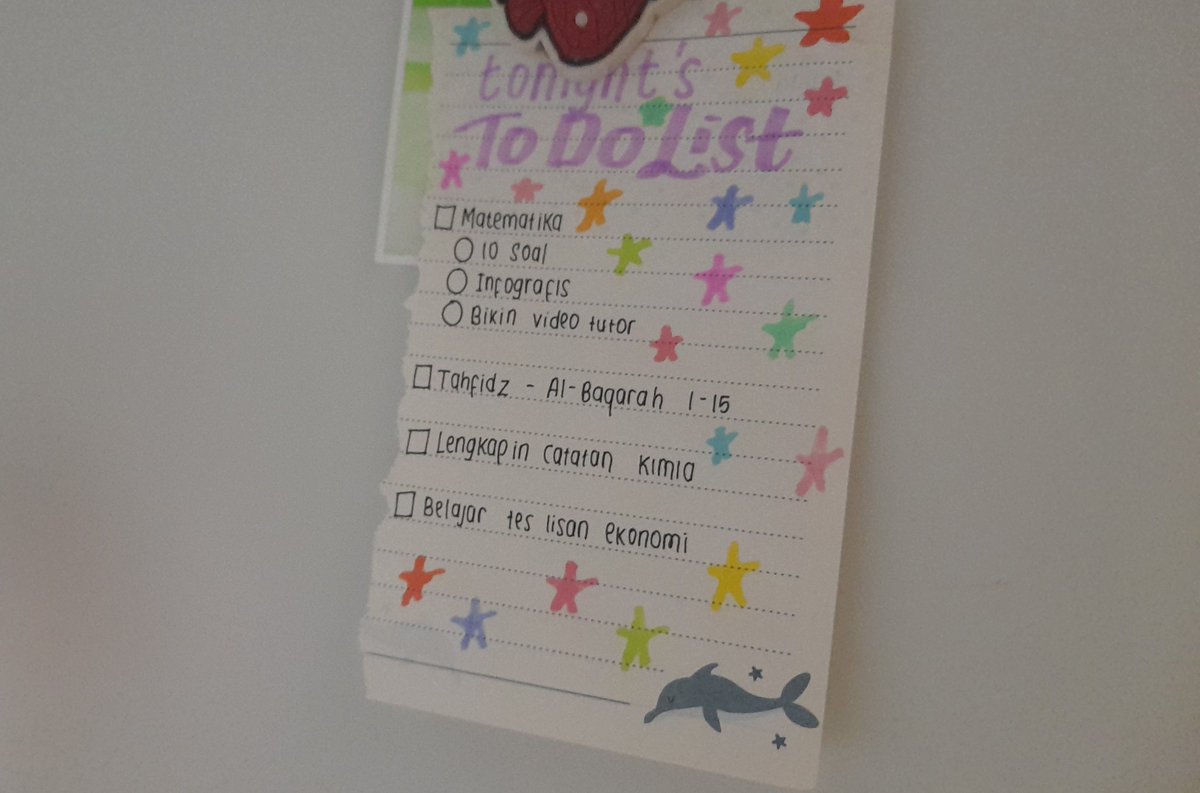 tonight's
To Do List
Matematika
10 soal
Infografis
Bikin video tutor
Tahfidz - Al-Baqarah 1-15
Lengkapin catatan kimia
Belajar tes lisan ekonomi